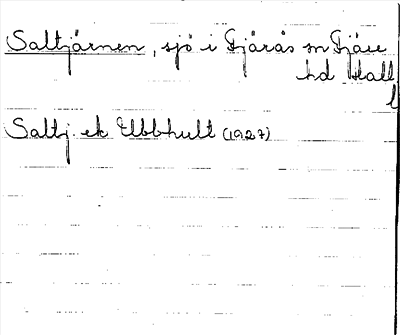 Saltjärnen, sjö i Fjärås sn Fjäre
hd Hall
l
Saltj. ek Ebbhult (1927)